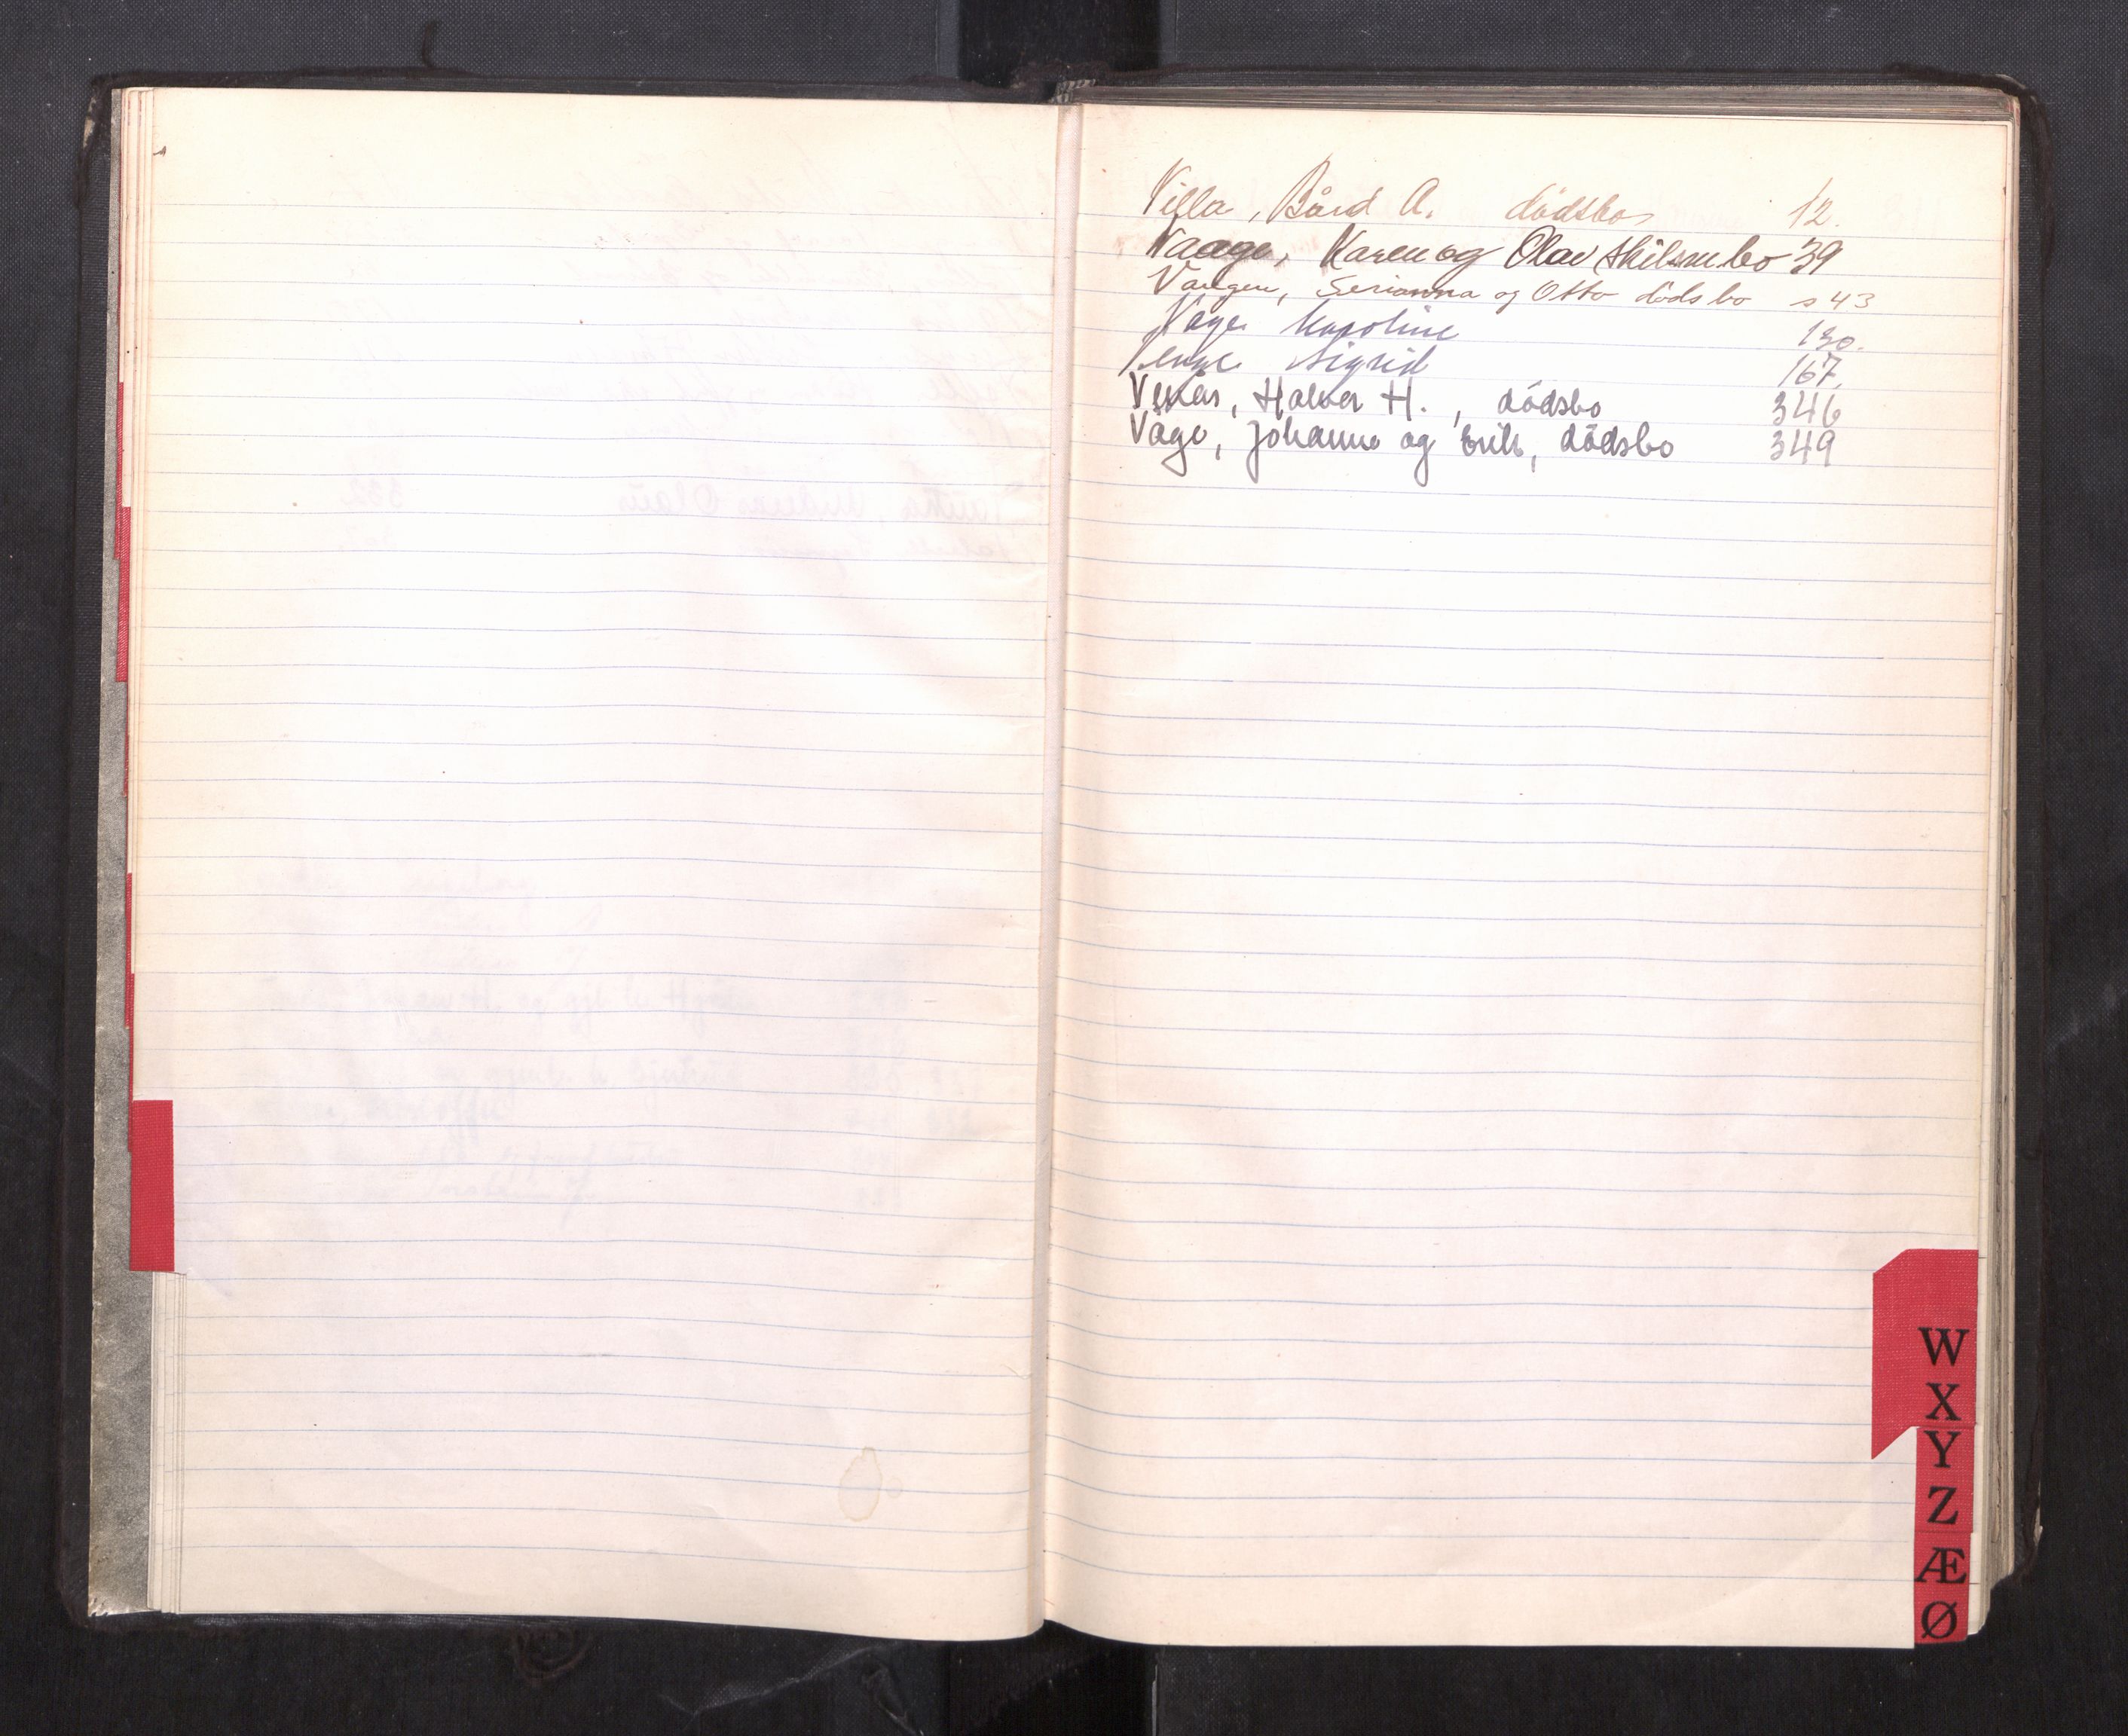 Villa, Bård A. dödsbo 12.
Vaage, Karen og Olav skilsm. bo 39
Vangen, Serianna og Otto dödsbo s 43
Våge Karoline 130.
Venge Sigrid 167.
Vekås, Halvor H., dödsbo 346
Våge, Johanne og Erik, dödsbo 349
W
X
Y
Z
Æ
Ø